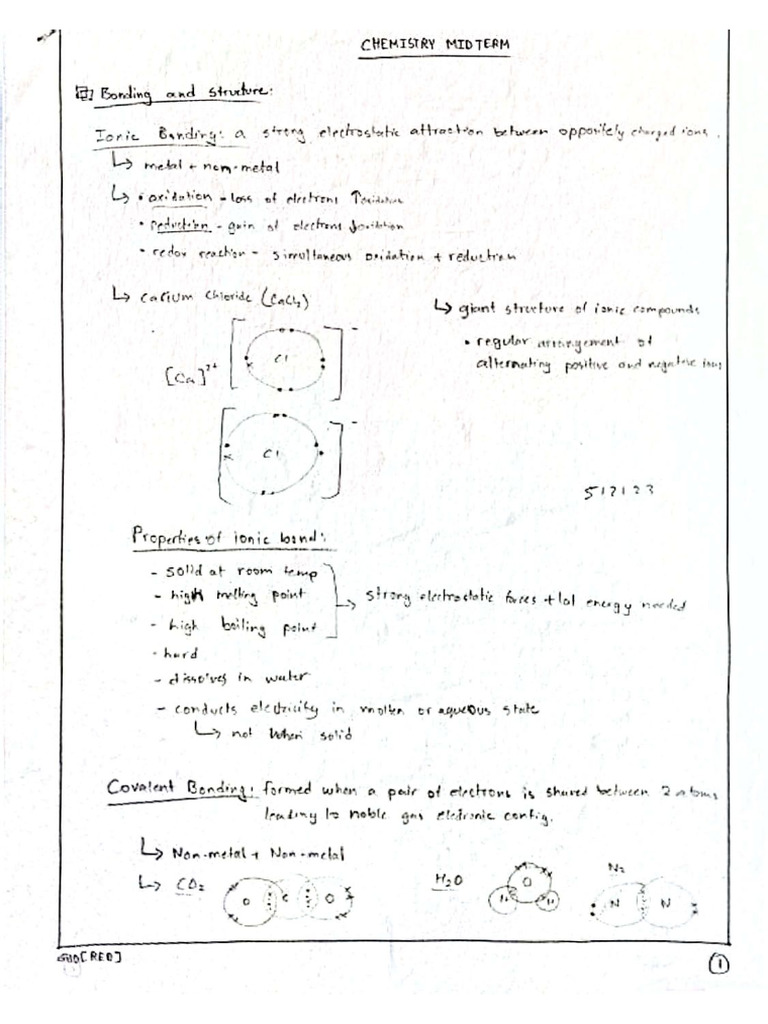 CHEMISTRY MIDTERM
Bonding and structure:
Ionic Bonding: a strong electrostatic attraction between oppositely charged ions.
↳ metal + non-metal
↳ • oxidation - loss of electrons ↑oxidation
• reduction - gain of electrons ↓oxidation
• redox reaction - simultaneous oxidation + reduction
↳ calcium chloride (CaCl₂)
↳ giant structure of ionic compounds
• regular arrangement of
alternating positive and negative ions
[Ca]²⁺
Cl
-
Cl
-
Properties of ionic bond:
- solid at room temp
- high melting point
→ strong electrostatic forces + lot energy needed
- high boiling point
- hard
- dissolves in water
- conducts electricity in molten or aqueous state
↳ not when solid
Covalent Bonding: formed when a pair of electrons is shared between 2 atoms
leading to noble gas electronic config.
↳ Non-metal + Non-metal
↳ CO₂
O C O
H₂O
O
H H
N₂
N N
[RED]
1